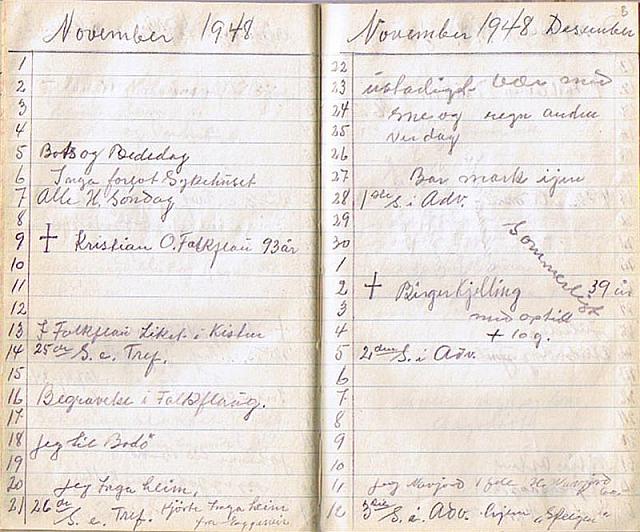 November 1948
1
2
3
4
5 Bots og Bededag
6 Inga forlot Sykehuset
7 Alle H. Søndag
8
9 † Kristian O. Falkflaug 93 år
10
11
12
13 I Falkflaug Liket i Kisten
14 25de S. e. Tref.
15
16 Begravelse i Falkflaug.
17
18 jeg til Bodö
19
20 jeg Inga heim,
21 26de S. e. Tref. Hjörte Inga heim
November 1948 Desember
3
22
23 ustadigt vær med
24 sne og regn andre
25 ver dag
26
27 Bar mark igjen
28 1ste S. i Adv.
29
30
Sommerligt
1
2 † Birger Kjelling 39 år
3 med optil
4 + 10 g.
5 2den S. i Adv.
6
7
8
9
10
11 jeg
12 3die S. i Adv.